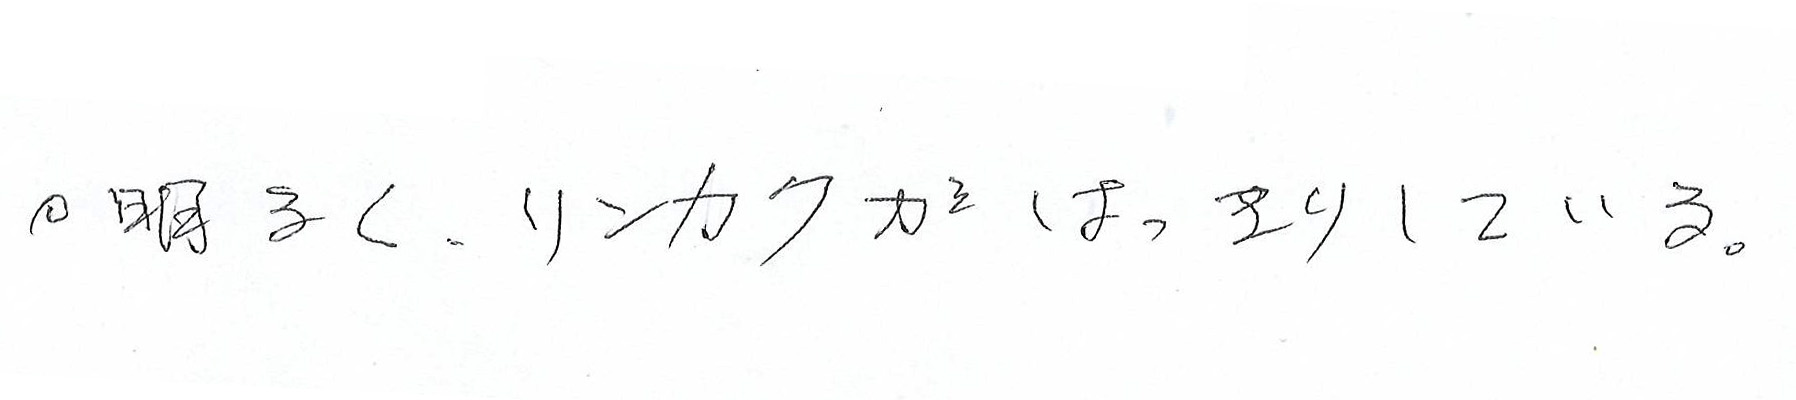 ○明るく、リンカクがはっきりしている。